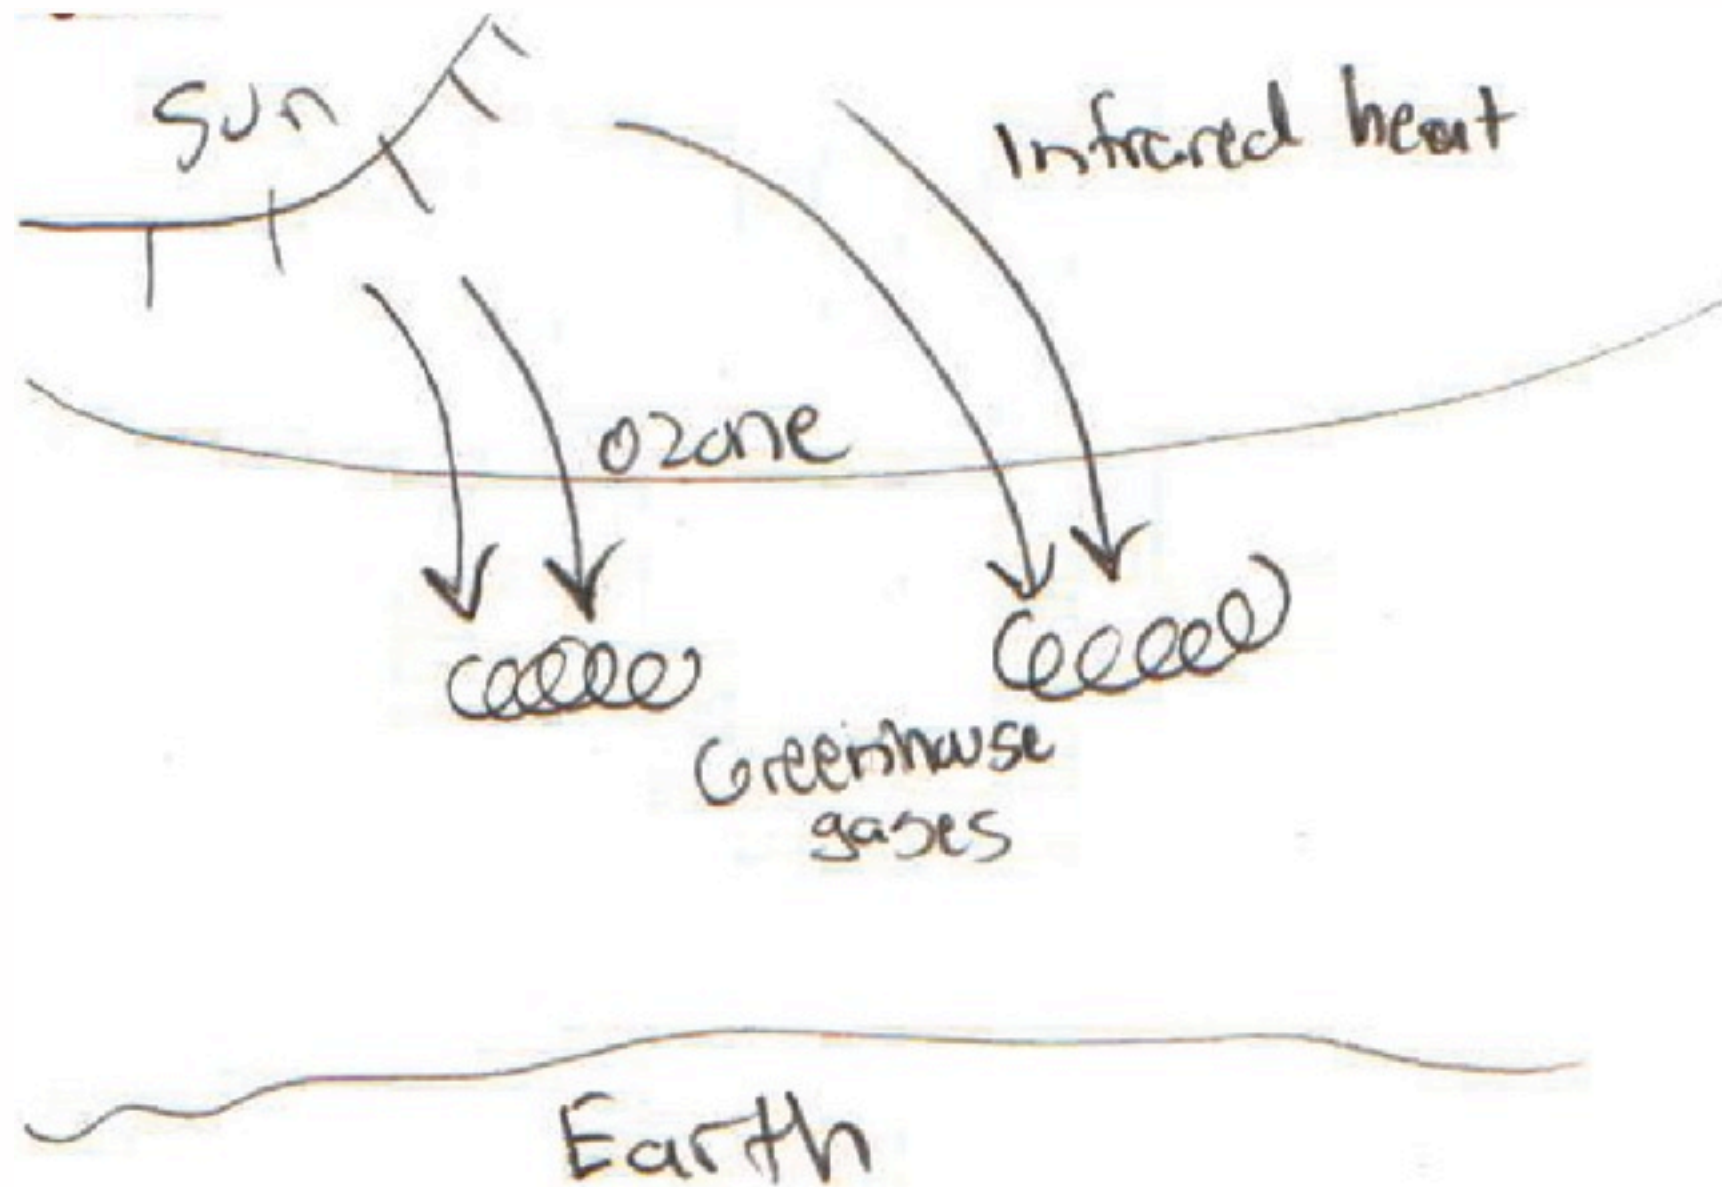 Sun
Infrared heat
ozone
Greenhouse
gases
Earth